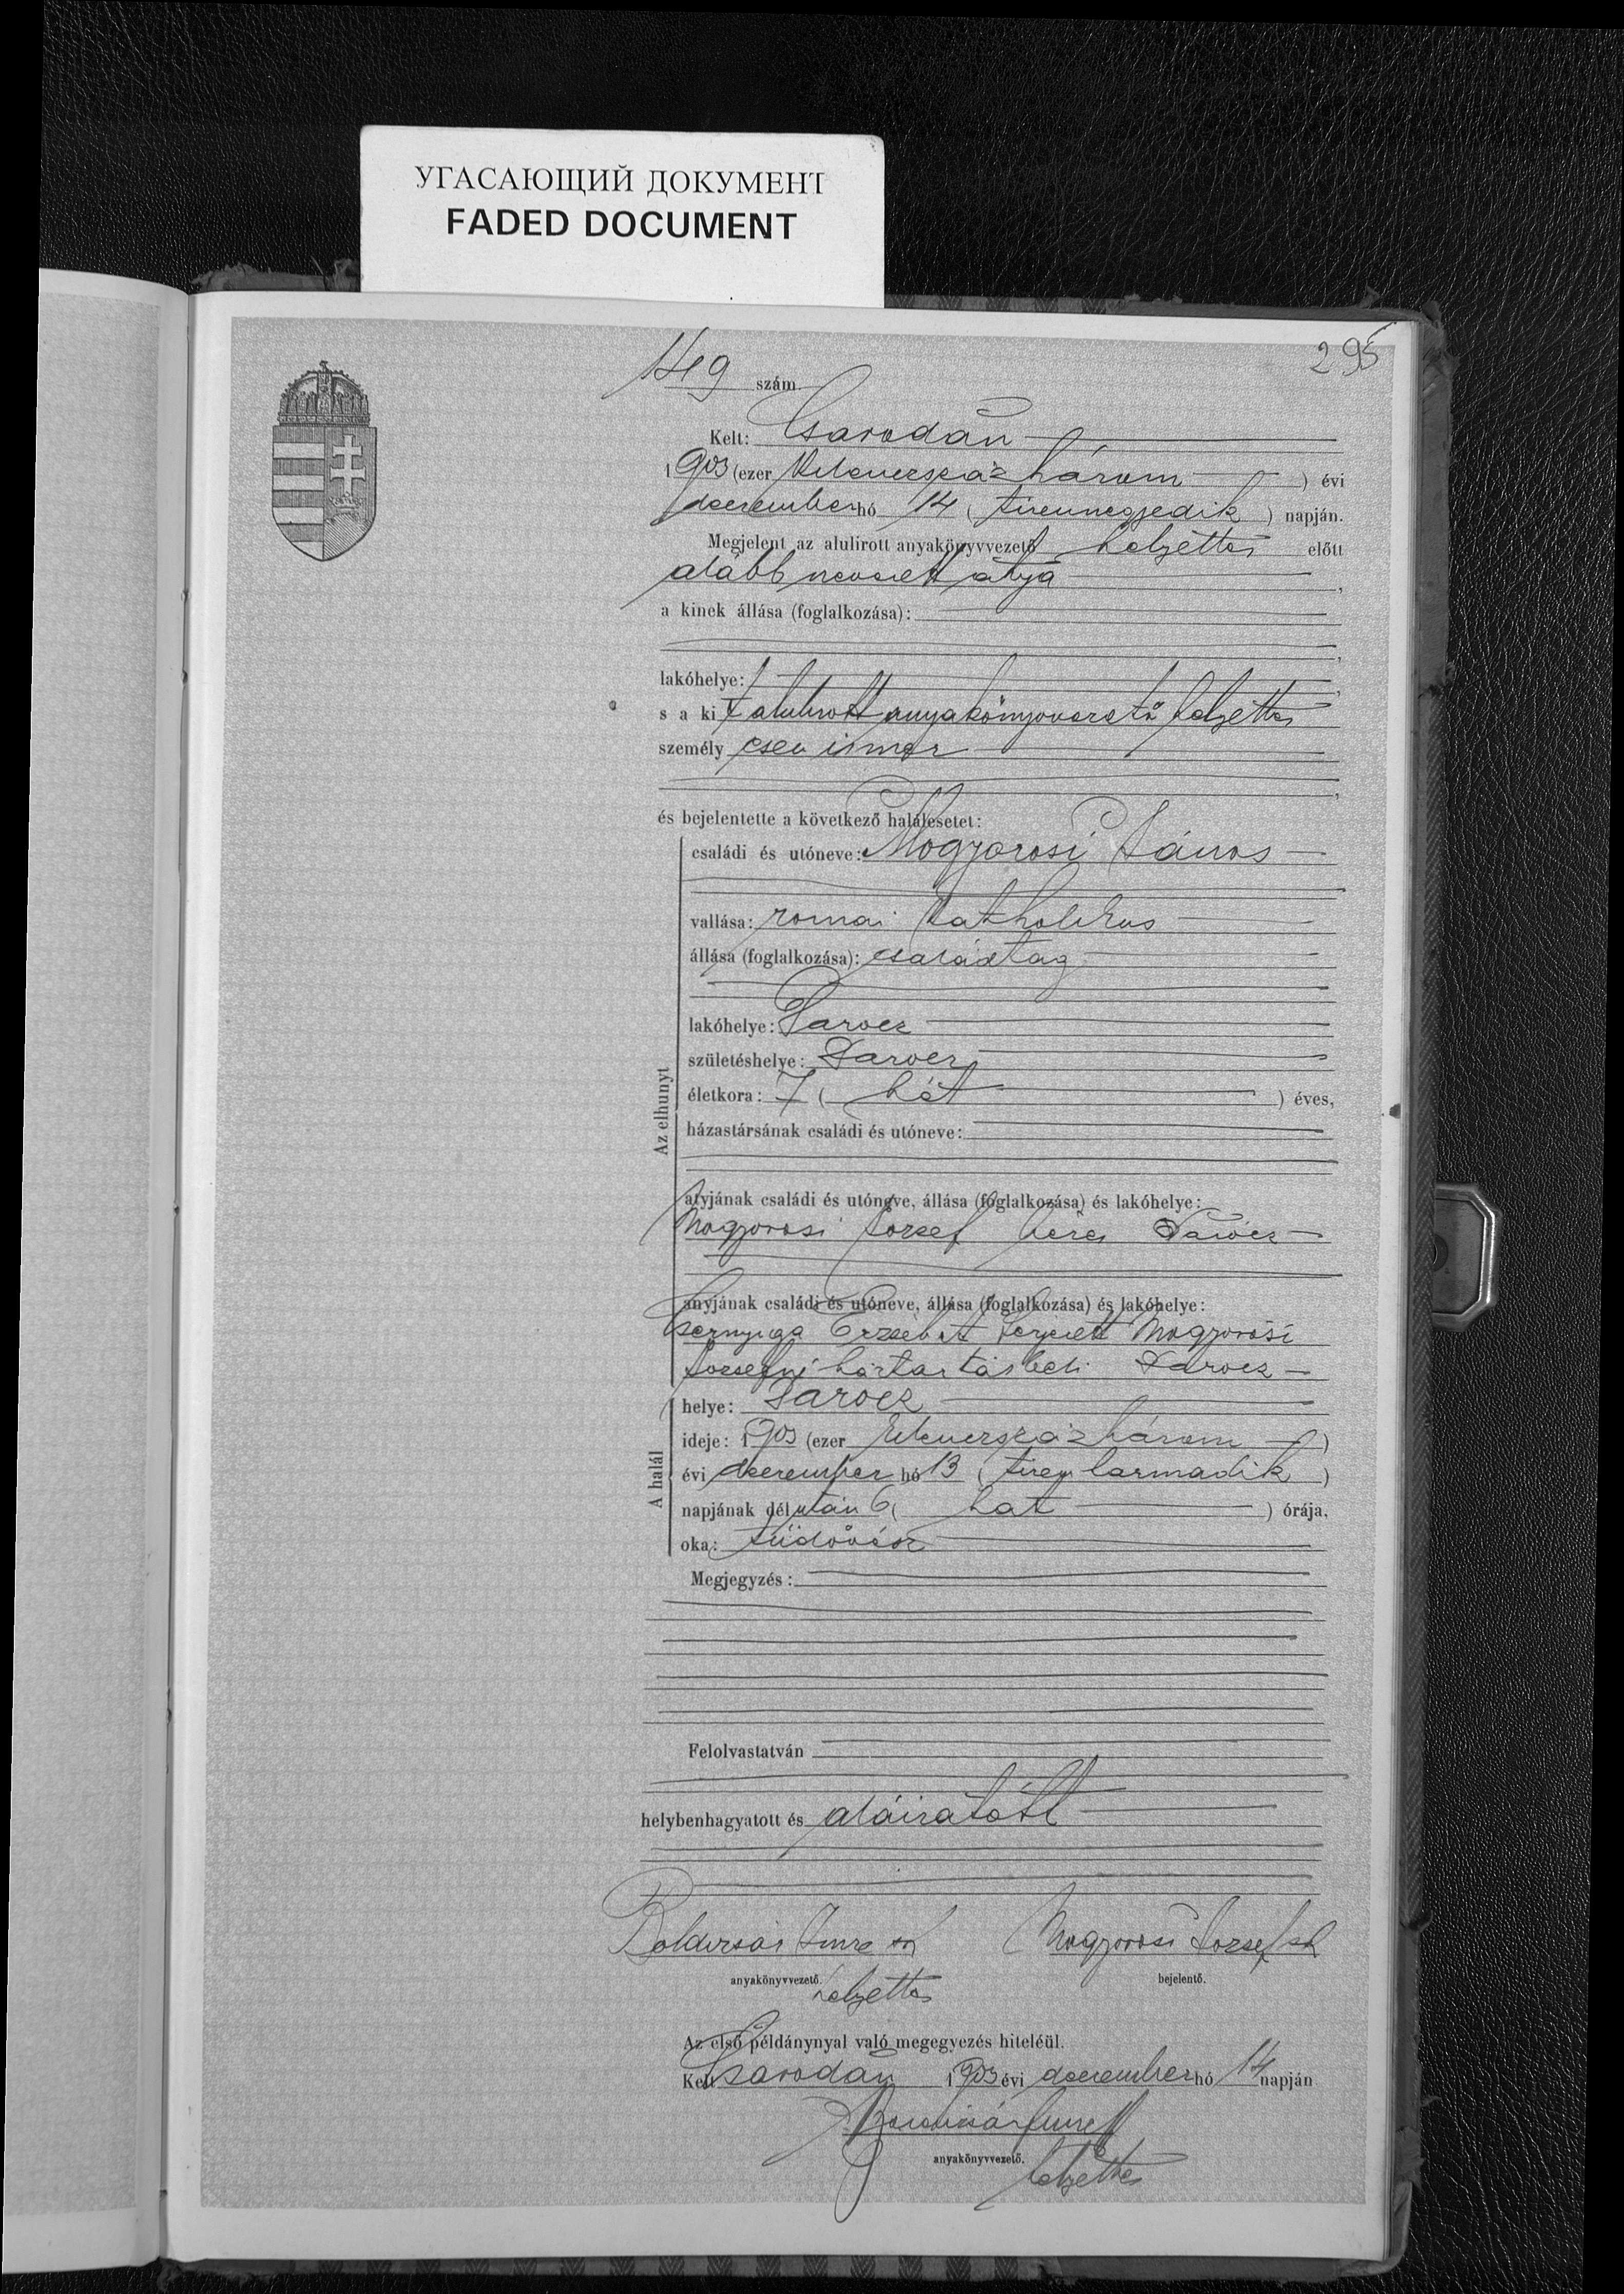 УГАСАЮЩИЙ ДОКУМЕНТ
FADED DOCUMENT
295
149 szám.
Kelt: Csarodán
1903 (ezer kilenczszázhárom) évi
deczember hó 14 (tizennegyedik) napján.
Megjelent az alulirott anyakönyvvezető helyettes előtt
alább nevezett atya,
a kinek állása (foglalkozása):
lakóhelye:
s a kit alulirott anyakönyvvezető helyettes
személyesen ismer
és bejelentette a következő halálesetet:
családi és utóneve: Mogyorosi János
vallása: romai katholikus
állása (foglalkozása): családtag
lakóhelye: Darocz
születéshelye: Darocz
életkora: 7 (hét) éves,
házastársának családi és utóneve:
Az elhunyt
atyjának családi és utóneve, állása (foglalkozása) és lakóhelye:
Mogyorosi József Darócz
anyjának családi és utóneve, állása (foglalkozása) és lakóhelye:
Erzsébet férjezett Mogyorosi
Józsefné háztartásbeli Darocz
A halál
helye: Darocz
ideje: 1903 (ezer kilenczszázhárom)
évi deczember hó 13 (tizenharmadik)
napjának délután 6 (hat) órája,
oka: tüdővész
Megjegyzés:
Felolvastatván
helybenhagyatott és aláiratott
Imre sk Mogyorosi József sk
anyakönyvvezető. bejelentő.
helyettes
Az első példánynyal való megegyezés hiteléül.
Kelt Csarodán 1903 évi deczember hó 14 napján
Imre
anyakönyvvezető.
helyettes